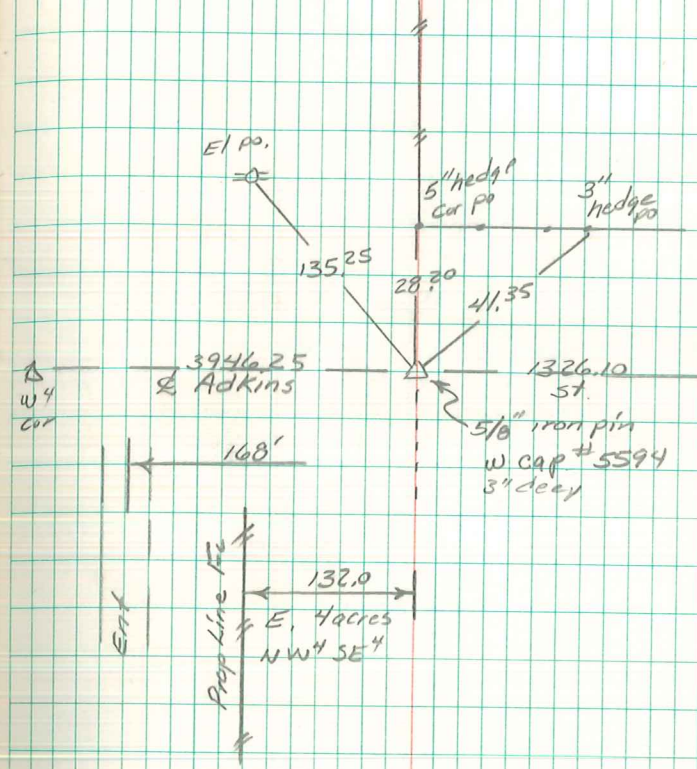 El po.
5" hedge
Cor po
3"
hedge
po
135.25
28.20
41.35
3946.25
℄ Adkins
1326.10
St.
W 4
Cor
5/8" iron pin
W cap #5594
3" deep
168'
Ent
Prop Line Fc
132.0
E. 4 acres
NW4 SE4